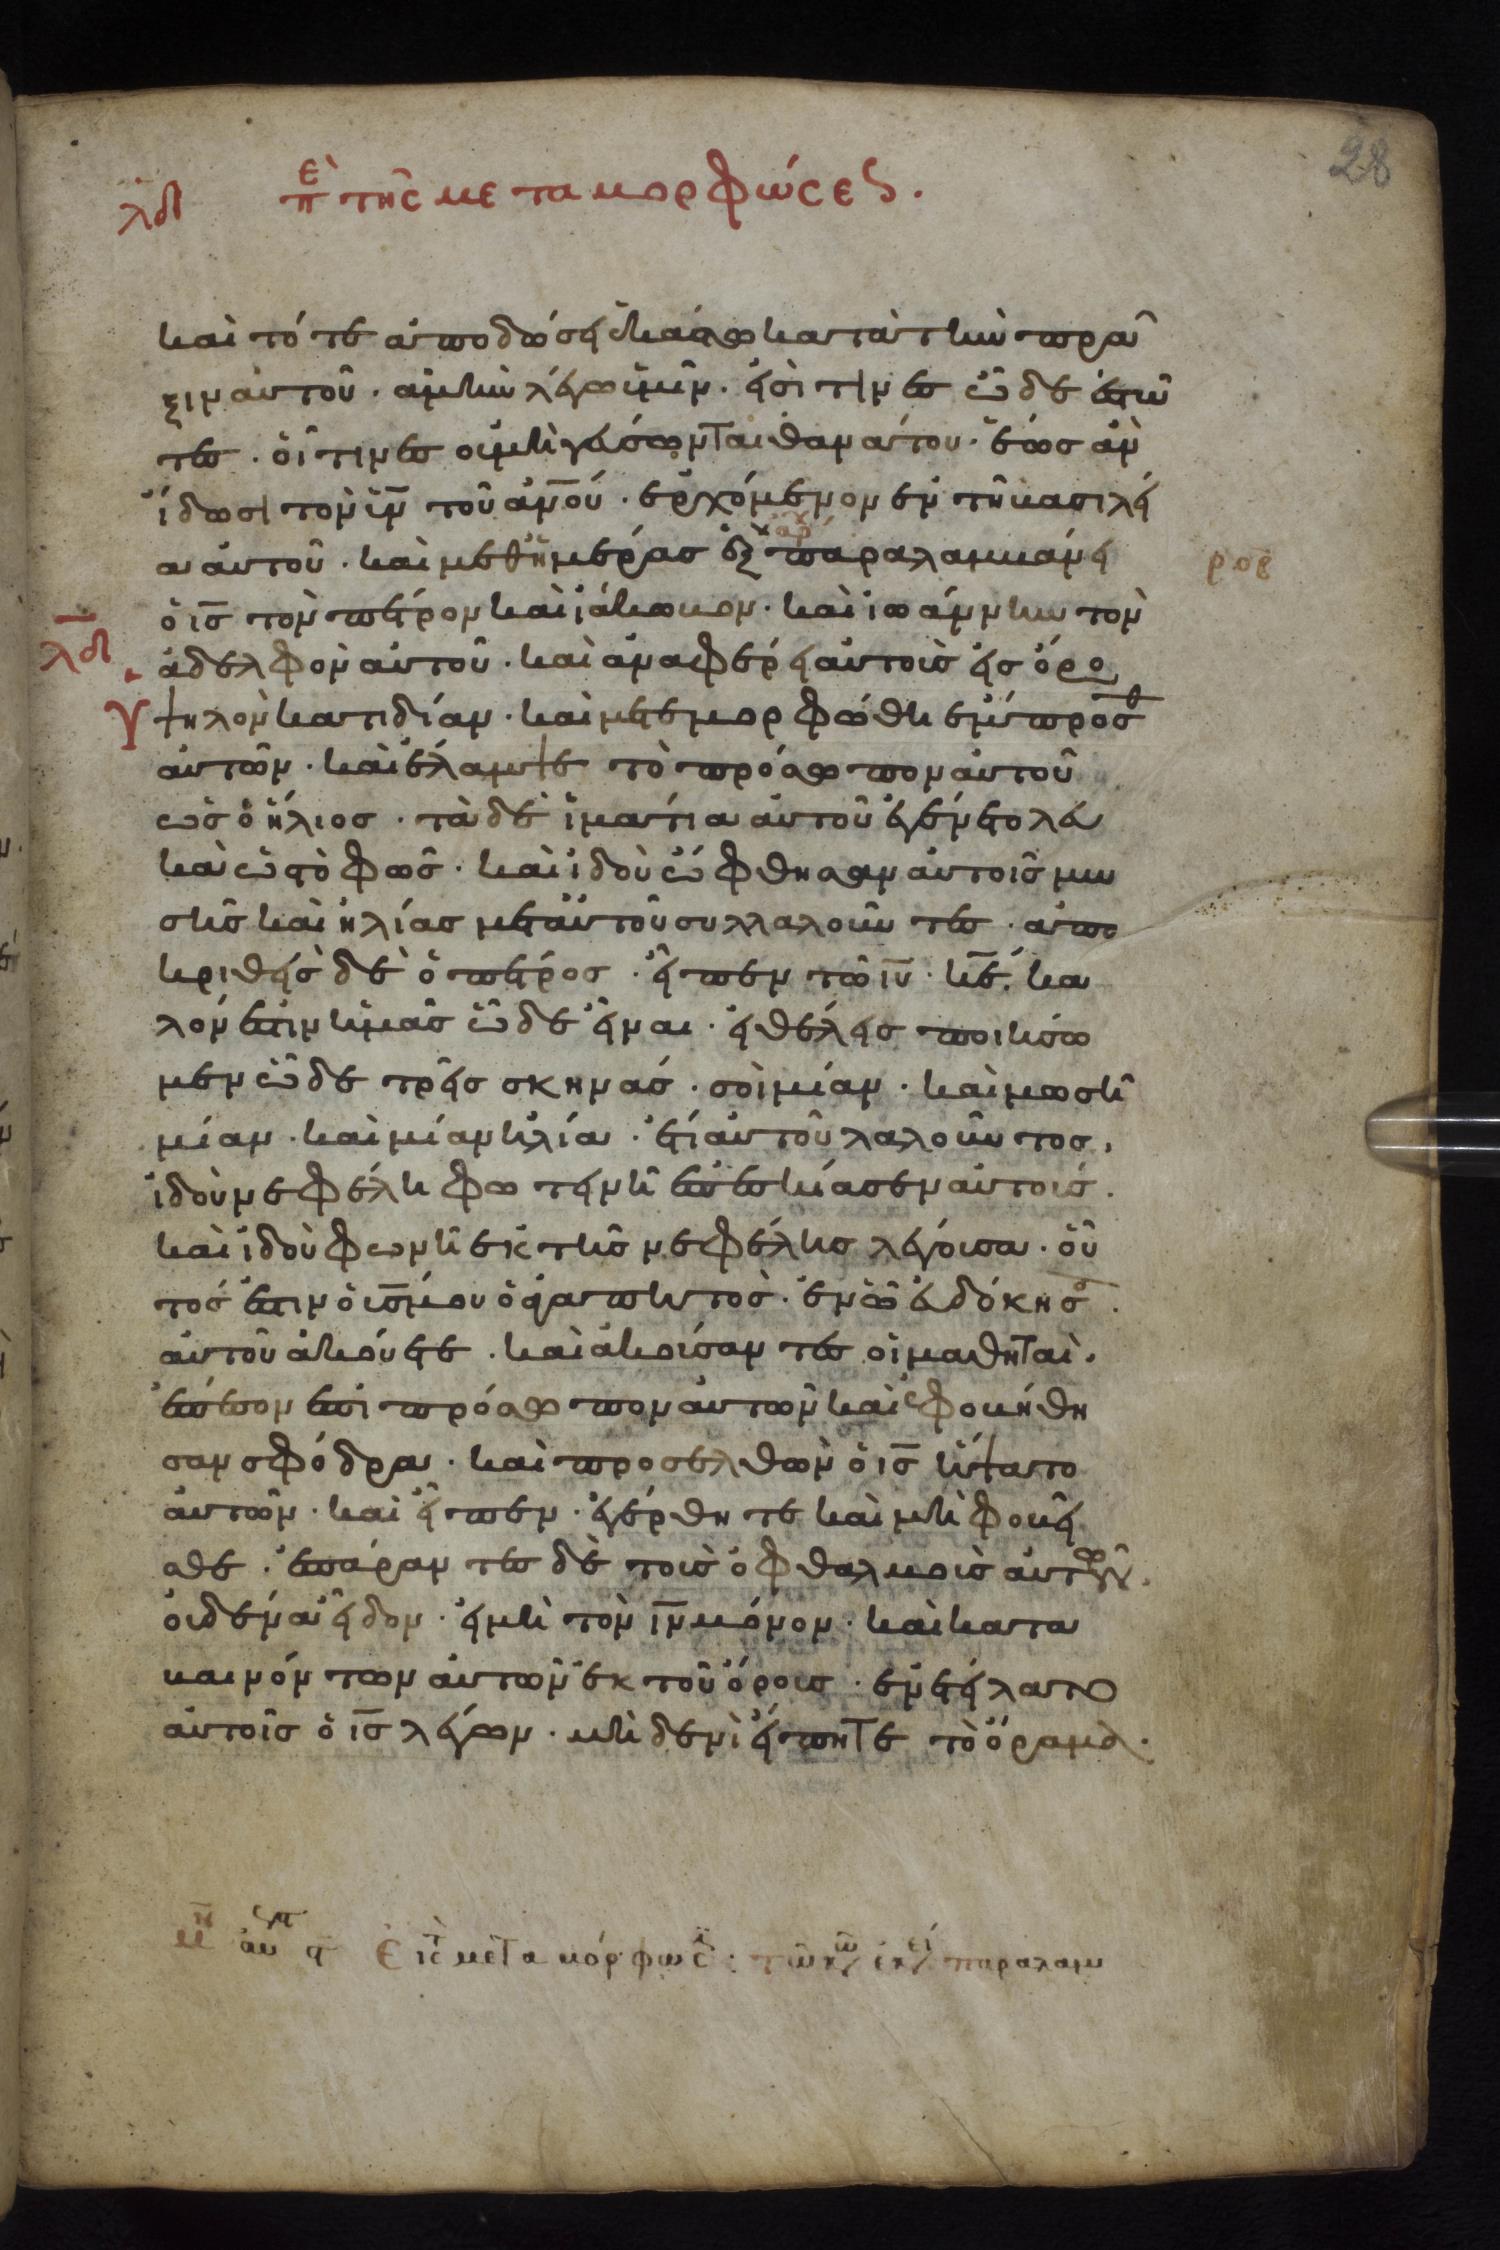 28
λδ
ἐπ τῆς μεταμορφώσεως.
καὶ τότε ἀποδώσει ἑκάστω κατὰ τὴν πρᾶ
ξιν αὐτοῦ. ἀμὴν λέγω ὑμῖν. εἰσί τινες ὧδε ἑστῶ
τες. οἵτινες οὐ μὴ γεύσωνται θανάτου. ἕως ἂν
ἴδωσι τὸν ὑν τοῦ ανου. ἐρχόμενον ἐν τῆ βασιλεί
α αὐτοῦ. καὶ μεθ ἡμέρας ἓξ παραλαμβάνει
ροβ
ὁ ις τὸν πέτρον καὶ ἰάκωβον. καὶ ἰωάννην τὸν
λδ
ἀδελφὸν αὐτοῦ. καὶ ἀναφέρει αὐτοὺς εἰς ὄρο
ὑψηλὸν κατιδίαν. καὶ μετεμορφώθη ἔμπροσθ
αὐτῶν. καὶ ἔλαμψε τὸ πρόσωπον αὐτοῦ
ὡς ὁ ἥλιος. τὰ δὲ ἱμάτια αὐτοῦ ἐγένετο λευ
κὰ ὡς τὸ φῶς. καὶ ἰδοὺ ὤφθησαν αὐτοῖς μω
σῆς καὶ ἠλίας μετ αὐτοῦ συλλαλοῦντες. ἀπο
κριθεὶς δὲ ὁ πέτρος. εἶπεν τῶ ιυ. κε. κα
λόν ἐστιν ἡμᾶς ὧδε εἶναι. εἰ θέλεις ποιήσω
μεν ὧδε τρεῖς σκηνάς. σοὶ μίαν. καὶ μωσῆ
μίαν. καὶ μίαν ἠλία. ἔτι αὐτοῦ λαλοῦντος,
ἰδοὺ νεφέλη φωτεινὴ ἐπεσκίασεν αὐτούς.
καὶ ἰδοὺ φωνὴ ἐκ τῆς νεφέλης λέγουσα. οὗ
τός ἐστιν ὁ υς μου ὁ ἀγαπητός. ἐν ὧ εὐδόκησα.
αὐτοῦ ἀκούετε. καὶ ἀκούσαντες οἱ μαθηταὶ.
ἔπεσον ἐπὶ πρόσωπον αὐτῶν καὶ ἐφοβήθη
σαν σφόδρα. καὶ προσελθὼν ὁ ις ἥψατο
αὐτῶν. καὶ εἶπεν. ἐγέρθητε καὶ μὴ φοβεῖ
σθε. ἐπάραντες δὲ τοὺς ὀφθαλμοὺς αὐτῶν.
οὐδένα εἶδον. εἰ μὴ τὸν ιν μόνον. καὶ κατα
βαινόντων αὐτῶν ἐκ τοῦ ὄρους. ἐνετείλατο
αὐτοῖς ὁ ις λέγων. μηδενὶ εἴπητε τὸ ὅραμα.
εἰς τ μεταμόρφωσ: τῶ κ ἐκ παραλαμ